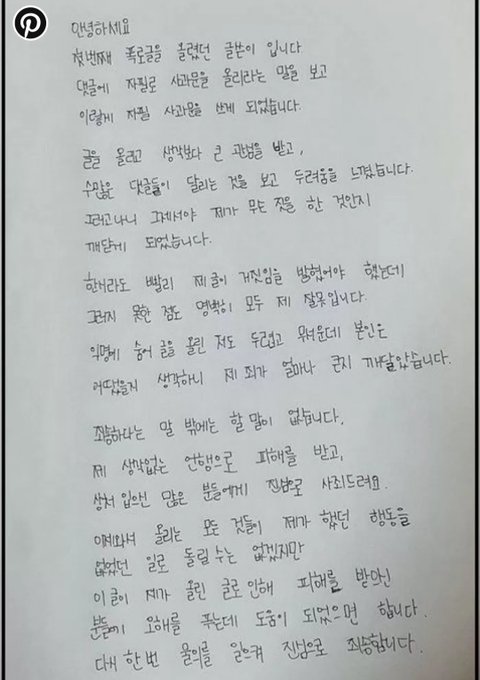 안녕하세요
첫번째 폭로글을 올렸던 글쓴이 입니다
댓글에 자필로 사과문을 올리라는 말을 보고
이렇게 자필 사과문을 쓰게 되었습니다.
글을 올리고 생각보다 큰 관심을 받고,
수많은 댓글들이 달리는 것을 보고 두려움을 느꼈습니다.
그러고나니 그제서야 제가 무슨 짓을 한 것인지
깨닫게 되었습니다.
한시라도 빨리 제 글이 거짓임을 밝혔어야 했는데
그러지 못한 점도 명백히 모두 제 잘못입니다.
익명에 숨어 글을 올린 저도 두렵고 무서운데 본인은
어땠을지 생각하니 제 죄가 얼마나 큰지 깨달았습니다.
죄송하다는 말 밖에는 할 말이 없습니다.
제 생각없는 언행으로 피해를 받고,
상처 입으신 많은 분들에게 진심으로 사죄드려요.
이제와서 올리는 모든 것들이 제가 했던 행동을
없었던 일로 돌릴 수는 없겠지만
이 글이 제가 올린 글로 인해 피해를 받으신
분들에 오해를 푸는데 도움이 되었으면 합니다.
다시 한 번 물의를 일으켜 진심으로 죄송합니다.